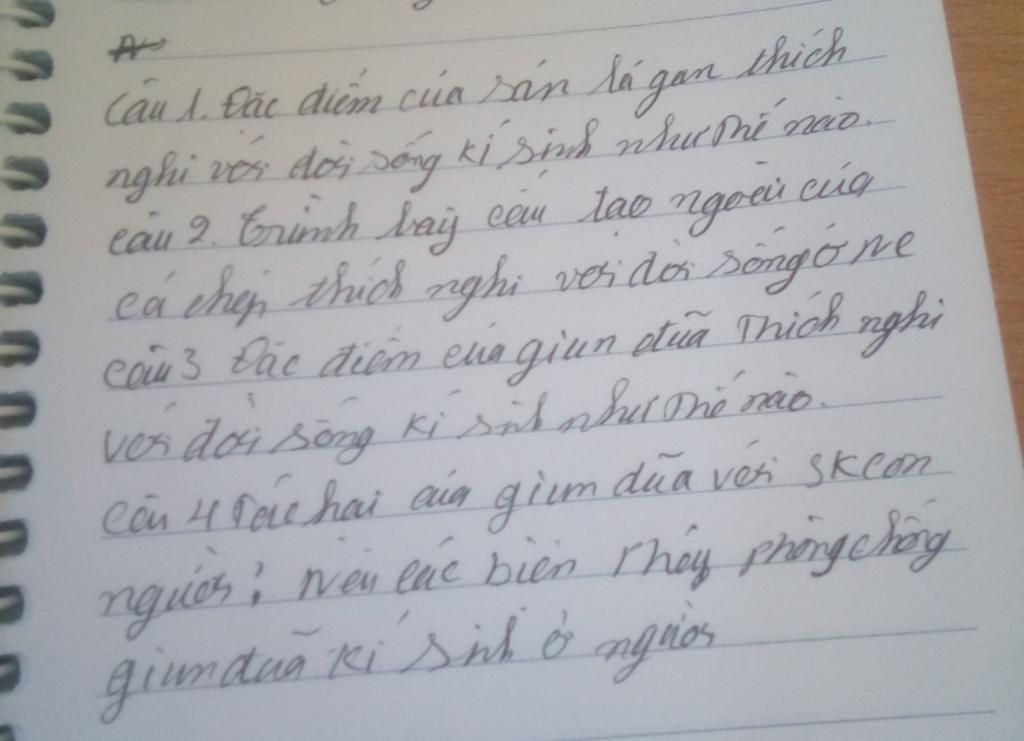 Câu 1. Đăc điểm của sán lá gan thích
nghi với đời sống kí sinh như thế nào.
câu 2. Trình bày cấu tạo ngoài của
cá chép thích nghi với đời sống ở
câu 3 Đăc điểm của giun đũa thích nghi
với đời sống kí sinh như thế nào.
câu 4 Tác hại của giun đũa với SK con
người? Nêu các biện pháp phòng chống
giun đũa kí sinh ở người